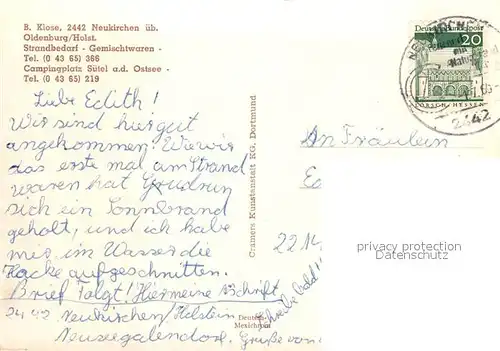 B. Klose, 2442 Neukirchen üb.
Oldenburg/Holst.
Strandbedarf - Gemischtwaren -
Tel. (0 43 65) 366
Campingplatz Sütel a.d. Ostsee -
Tel. (0 43 65) 219
Liebe Edith!
Wir sind hier gut
angekommen! Wie wir
das erste mal am Strand
waren hat Gudrun
sich ein Sonnbrand
geholt, und ich habe
mir im Wasser die
Hacke aufgeschnitten.
Brief folgt! Hier meine Anschrift
2442 Neukirchen/Holstein
Neuseegalendorf. Grüße von
Schreibe bald!
Cramers Kunstanstalt KG, Dortmund
Deutsche Bundespost
20
LORSCH/HESSEN
2442
An Fräulein
2214
privacy protection
AnsichtskartenCenter